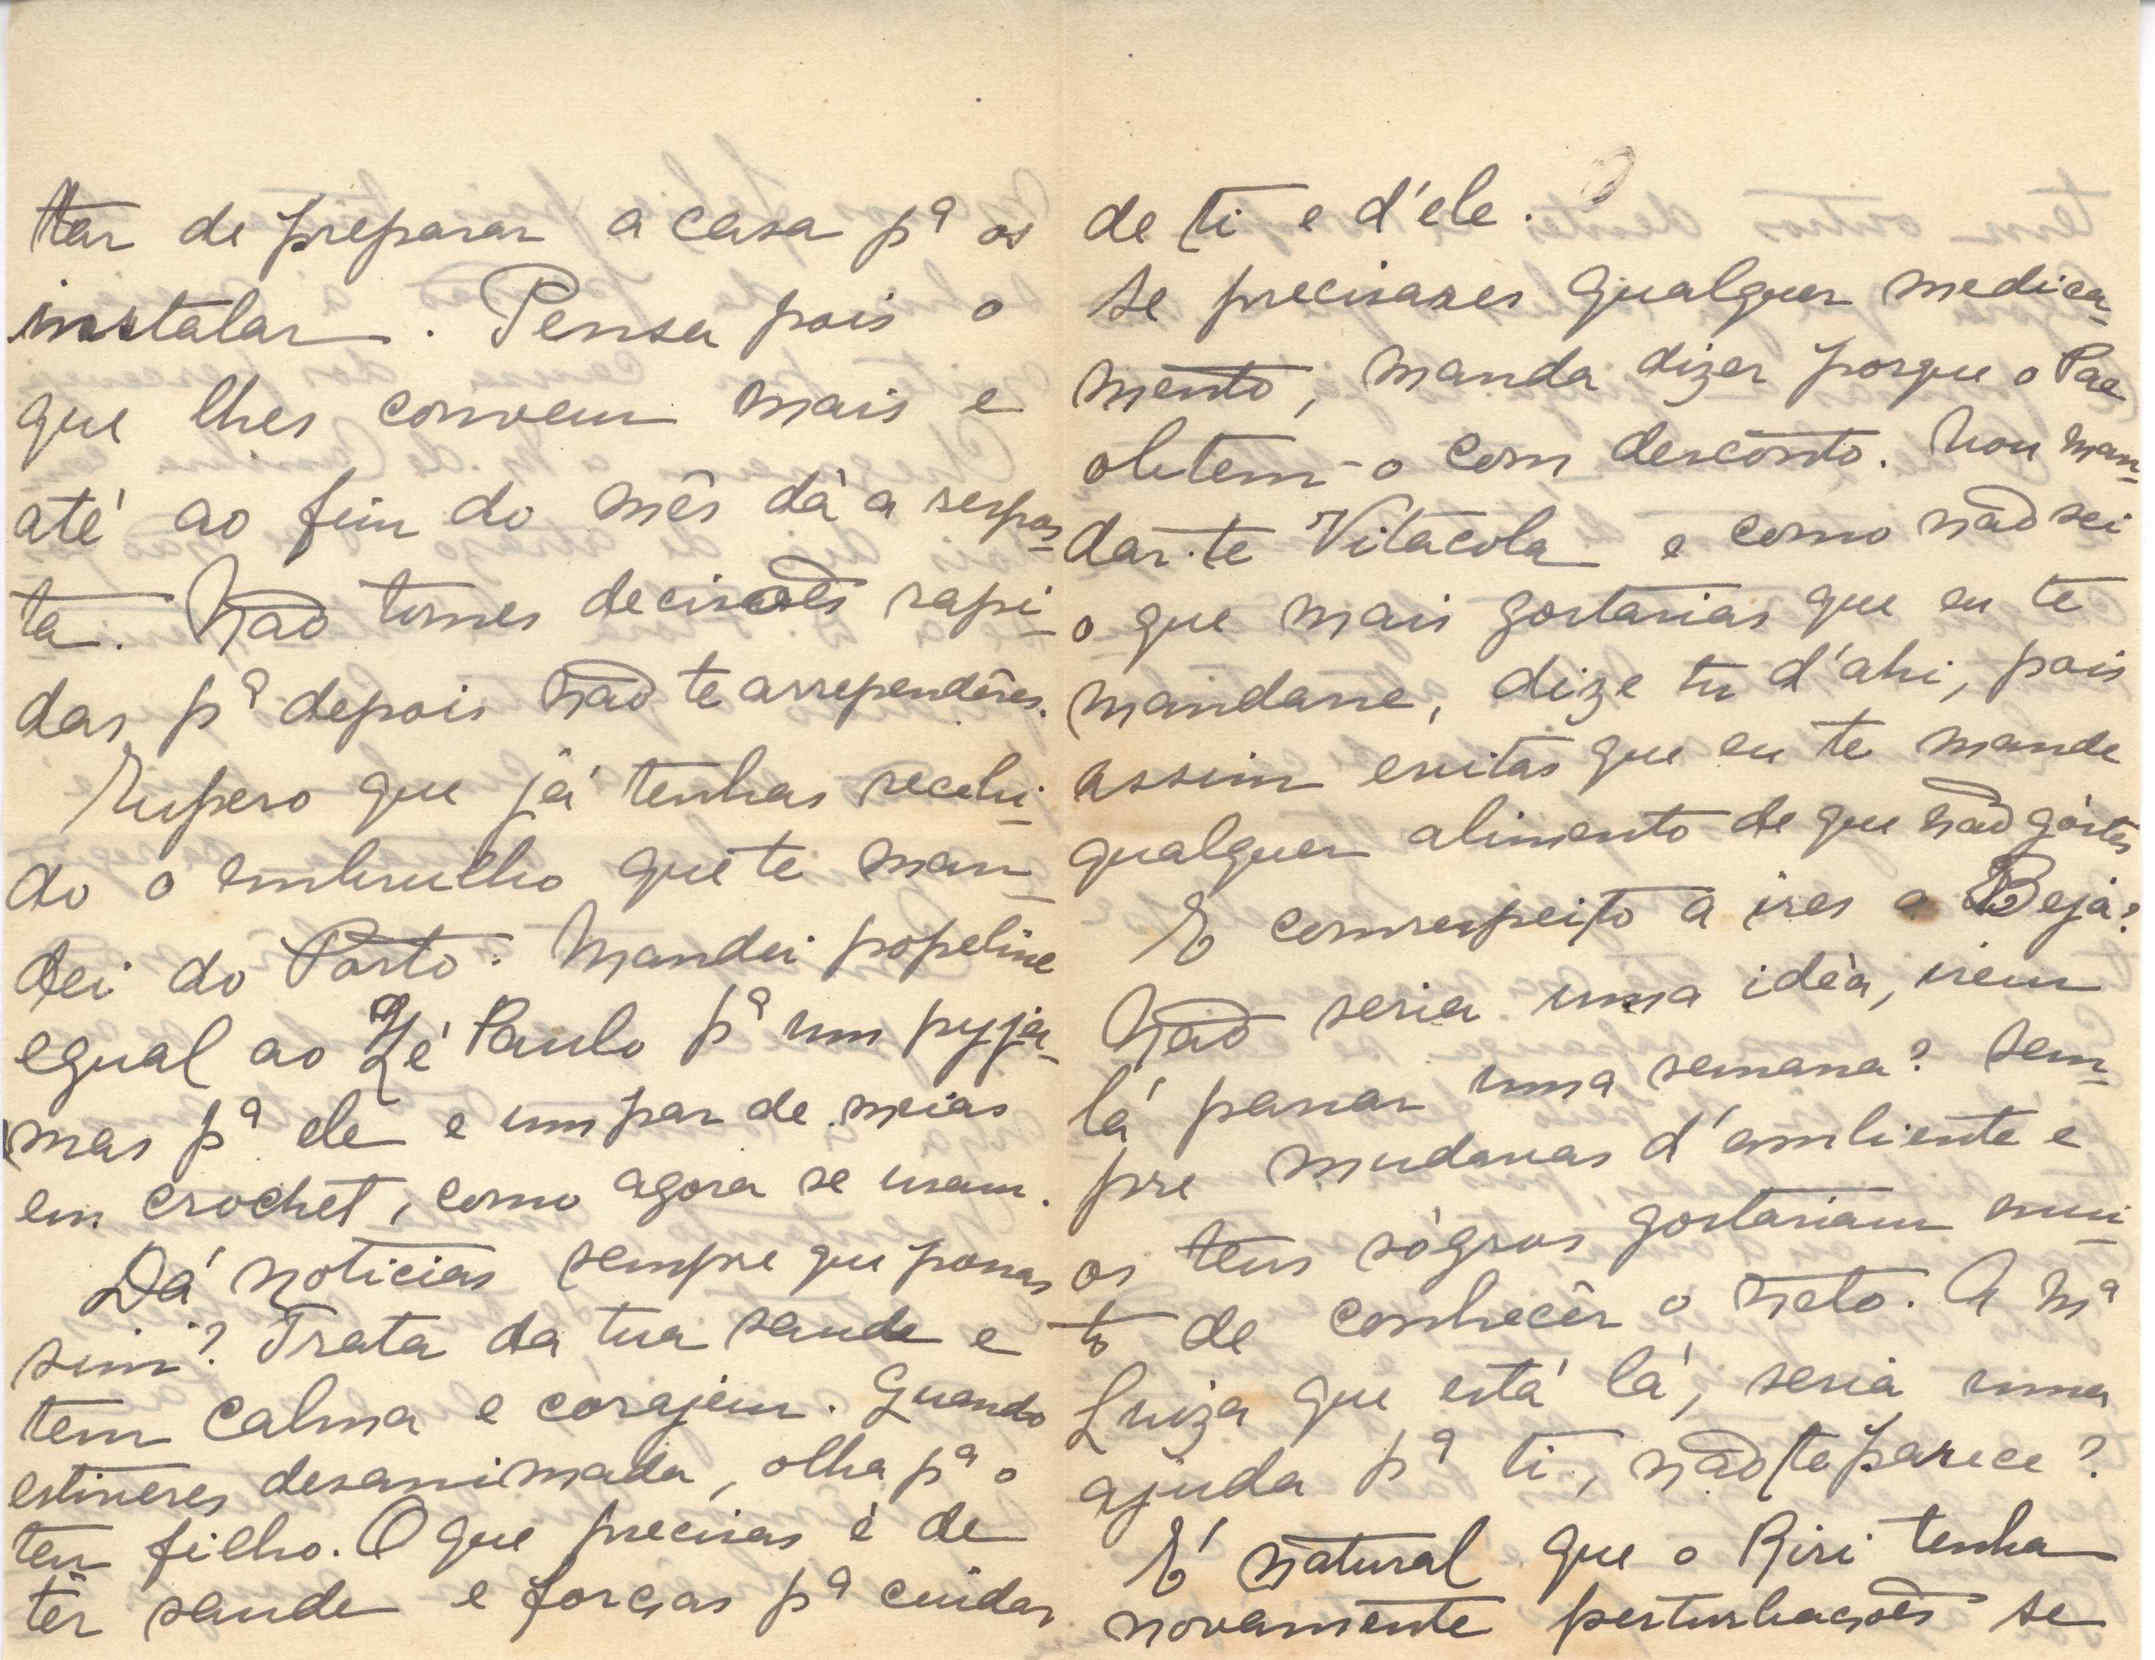 tar de preparar a casa pª os
instalar. Pensa pois o
que lhes convem mais e
até ao fim do mês dà a respos-
ta. Não tomes decisões rapi-
das pª depois não te arrependêres.
Espero que já tenhas recebi-
do o embrulho que te man-
dei do Porto. Mandei popeline
egual ao Zé Paulo pª um pyja-
mas pª ele e um par de meias
em crochet, como agora se usam.
Dá noticias sempre que possas
sim? Trata da tua saude e
tem calma e corajem. Quando
estiveres desanimada, olha pª o
teu filho. O que precisas é de
têr saude e forças pª cuidar
de ti e d'ele.
Se precisares qualquer medica-
mento, manda dizer porque o Pae
obtem-o com desconto. Vou man-
dar-te Vitacola e como não sei
o que mais gostarias que eu te
mandasse, dize tu d'ahi, pois
assim evitas que eu te mande
qualquer alimento de que não góstes
E com respeito a ires a Beja?
Não seria uma idèa, irem
lá passar uma semana? Sem-
pre mudavas d'ambiente e
os teus sógros gostariam mui-
to de conhecêr o neto. A Mª
Luiza que está lá, seria uma
ajuda pª ti, não te parece?
É natural que o Riri tenha
novamente perturbações se